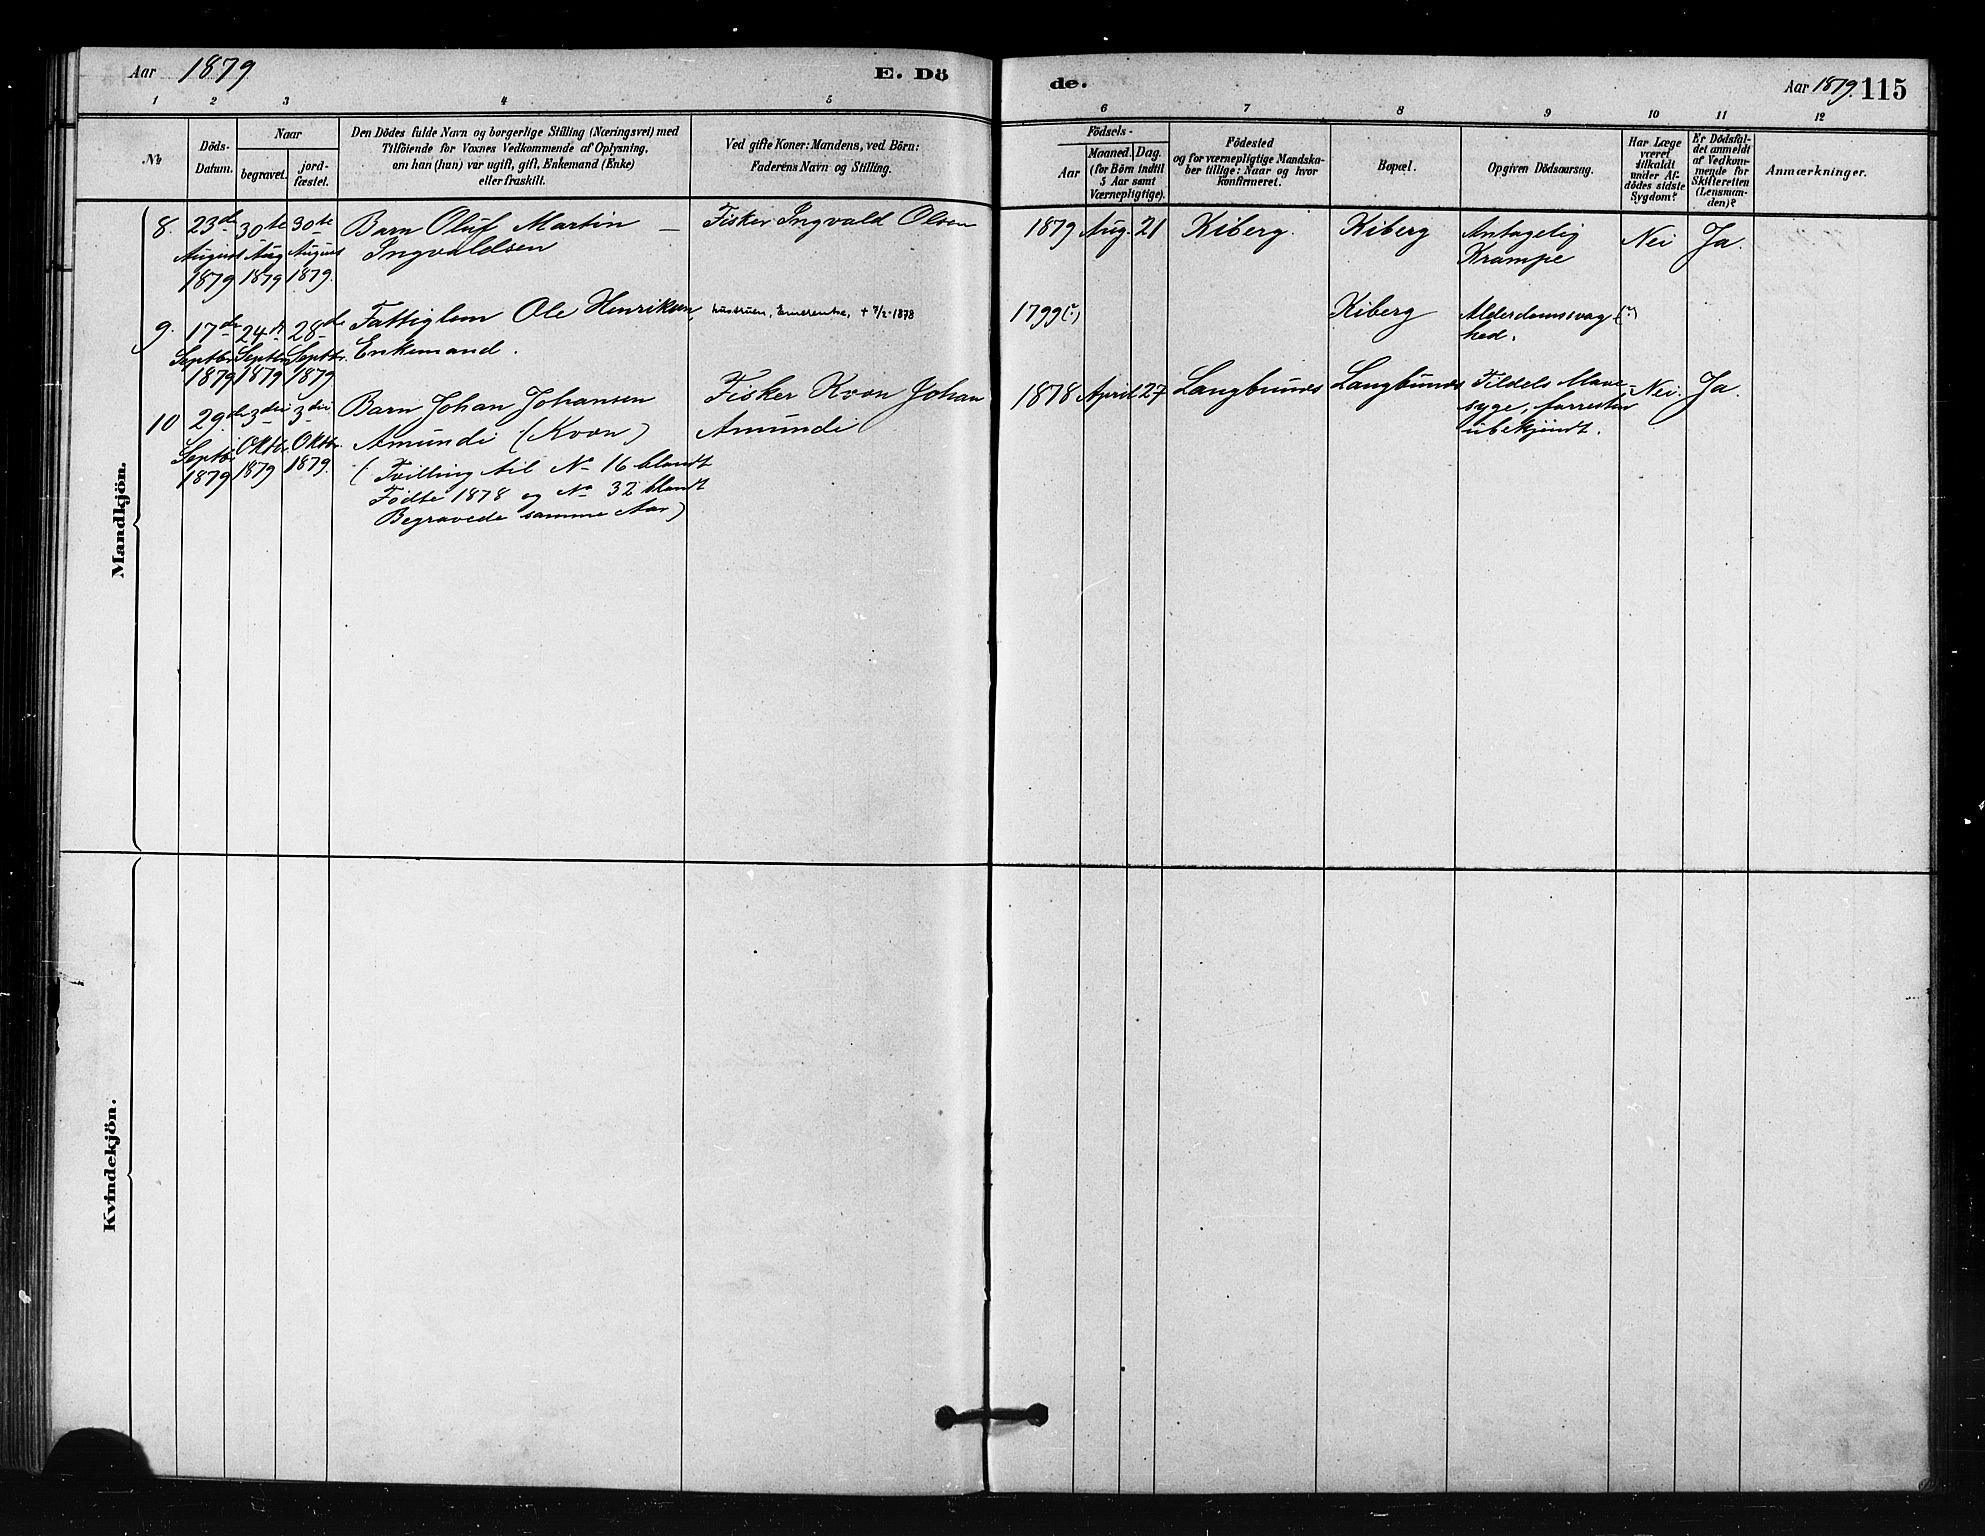 Aar 1879
E. Dö
de.
Aar 1879. 115
1 2 3 4 5 6 7 8 9 10 11 12
No
Döds-
Datum.
Naar
begravet.
jord-
fæstet.
Den Dödes fulde Navn og borgerlige Stilling (Næringsvei) med
Tilföiende for Voxnes Vedkommende af Oplysning,
om han (hun) var ugift, gift, Enkemand (Enke)
eller fraskilt.
Ved gifte Koner: Mandens, ved Börn:
Faderens Navn og Stilling.
Födsels-
Aar
Maaned. Dag.
(for Börn indtil
5 Aar samt
Værnepligtige).
Födested
og for værnepligtige Mandska-
ber tillige: Naar og hvor
konfirmeret.
Bopæl.
Opgiven Dödsaarsag.
Har Læge
været
tilkaldt
under Af-
dödes sidste
Sygdom?
Er Dödsfal-
det anmeldt
af Vedkom-
mende for
Skifteretten
(Lensman-
den)?
Anmærkninger.
Mandkjön.
8.
23de
August
1879
30te
Aug
1879
30te
August
1879.
Barn Oluf Martin
Ingvaldsen
Fisker Ingvald Olsen
1879 Aug. 21 Kiberg. Kiberg
Antagelig
Krampe
Nei Ja.
9.
17de
Septbr
1879
24de
Septbr
1879
28de
Septbr.
1879
Fattiglem Ole Henriksen,
Enkemand.
hustruen, Emerentse, + 7/2-1878
1799(?)
Kiberg
Alderdomsvag
hed.
(")
10
29de
Septbr
1879
3die
Oktbr.
1879
3die
Oktbr.
1879.
Barn Johan Johansen
Amundi (Kvæn)
(Tvilling til No 16 blandt
Födte 1878 og No 32 blandt
Begravede samme Aar)
Fisker Kvæn Johan
Amundi
1878 April 27 Langbunes Langbunes
Tildels Mave-
syge, forresten
ubekjendt.
Nei. Ja.
Kvindekjön.